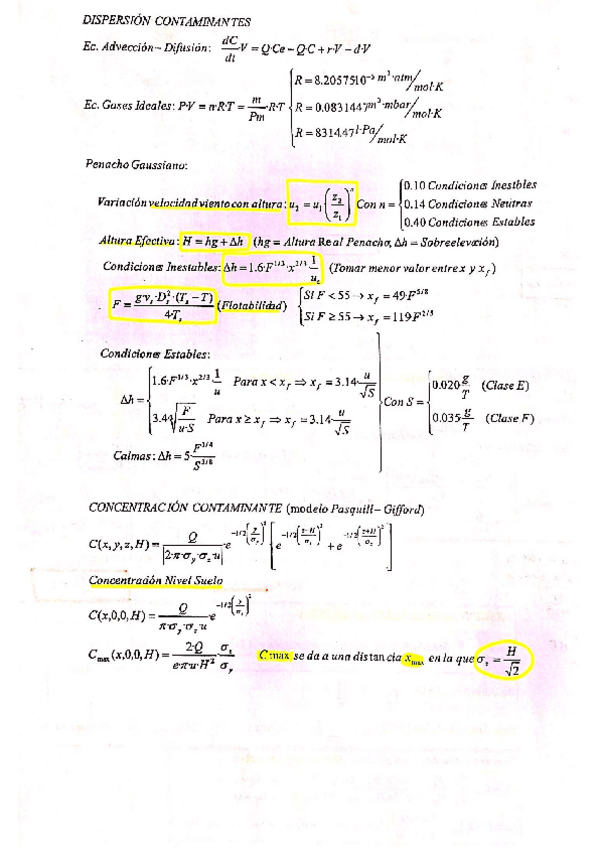 DISPERSIÓN CONTAMINANTES
Ec. Advección– Difusión: dC/dt·V = Q·Ce – Q·C + r·V – d·V
R = 8.2057510⁻⁵ m³·atm/mol·K
Ec. Gases Ideales: P·V = n·R·T = m/Pm·R·T { R = 0.083144 m³·mbar/mol·K
R = 8314.47 l·Pa/mol·K
Penacho Gaussiano:
0.10 Condiciones Inestbles
Variación velocidad viento con altura: u₂ = u₁(z₂/z₁)ⁿ Con n = { 0.14 Condiciones Neutras
0.40 Condiciones Estables
Altura Efectiva: H = hg + Δh (hg = Altura Real Penacho, Δh = Sobreelevación)
Condiciones Inestables: Δh = 1.6·F^1/3·x^2/3·1/u (Tomar menor valor entre x y x_f)
F = g·v_s·D²·(T_s – T)/4·T_s (Flotabilidad) { Si F < 55 → x_f = 49·F^5/8
Si F ≥ 55 → x_f = 119·F^2/5
Condiciones Estables:
Δh = { 1.6·F^1/3·x^2/3·1/u Para x < x_f ⇒ x_f = 3.14·u/√S
3.4·∛F/u·S Para x ≥ x_f ⇒ x_f = 3.14·u/√S
Con S = { 0.020·g/T (Clase E)
0.035·g/T (Clase F)
Calmas: Δh = 5·F^1/4/S^3/8
CONCENTRACIÓN CONTAMINANTE (modelo Pasquill– Gifford)
C(x, y, z, H) = Q/|2·π·σ_y·σ_z·u|·e^–1/2(y/σ_y)² [e^–1/2(z–H/σ_z)² + e^–1/2(z+H/σ_z)²]
Concentración Nivel Suelo
C(x,0,0, H) = Q/π·σ_y·σ_z·u·e
C_max(x,0,0, H) = 2·Q/e·π·u·H²·σ_z/σ_y C max se da a una distancia x_max en la que σ_z = H/√2